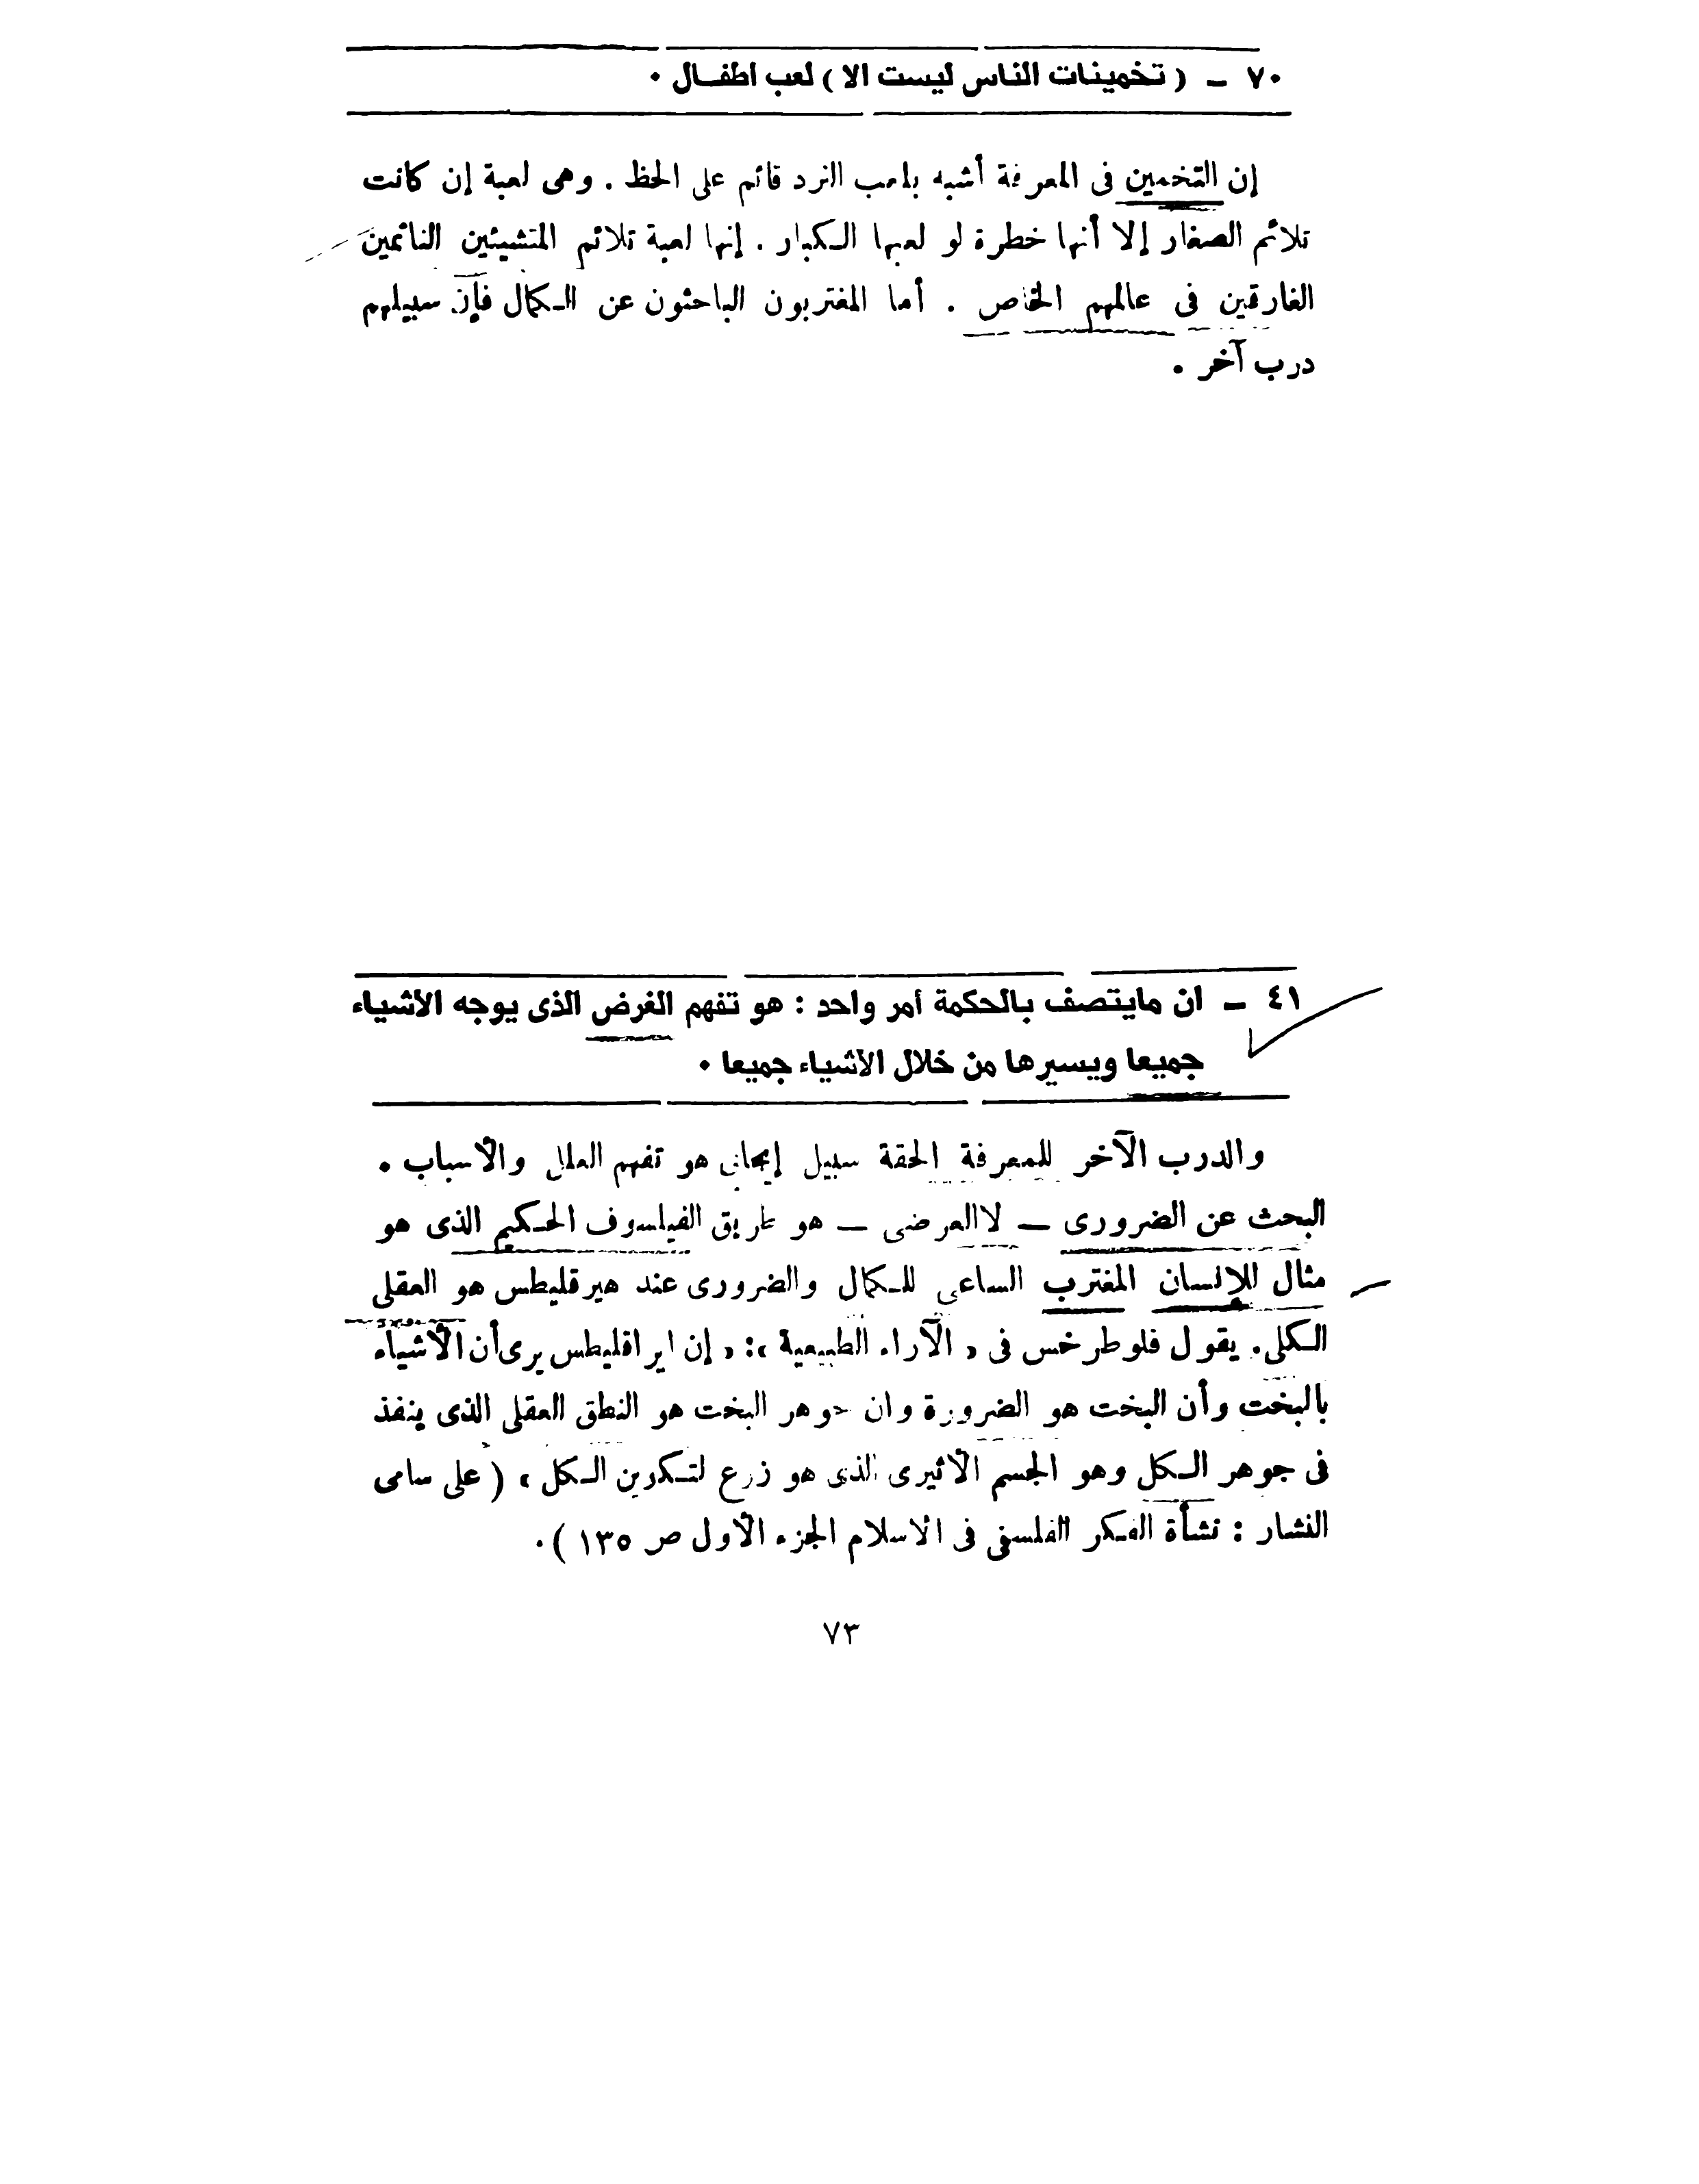 ٧٠ – ( تخمينات الناس ليست الا ) لعب اطفـال ٠
إن التخمين فى المعرفة أشبه بلعب النرد قائم على الحظ . وهى لعبة إن كانت
تلائم الصغار إلا أنها خطرة لو لعبها الكبار . إنها لعبة تلائم المتشيئين النائمين
الغارقين فى عالمهم الخاص . أما المغتربون الباحثون عن الكمال فإن سبيلهم
درب آخر .
٤١ – ان مايتصف بالحكمة أمر واحد : هو تفهم الغرض الذى يوجه الأشياء
جميعا ويسيرها من خلال الأشياء جميعا ٠
والدرب الآخر للمعرفة الحقة سبيل إيجابى هو تفهم العلل والأسباب .
البحث عن الضرورى – لاالعرضى – هو طريق الفيلسوف الحكيم الذى هو
مثال للإنسان المغترب الساعى للكمال والضرورى عند هيرقليطس هو العقلى
الكلى. يقول فلوطرخس فى « الآراء الطبيعية »: « إن ايراقليطس يرى أن الأشياء
بالبخت وأن البخت هو الضرورة وان جوهر البخت هو النطق العقلى الذى ينفذ
فى جوهر الكل وهو الجسم الأثيرى الذى هو زرع لتكوين الكل » ( على سامى
النشار : نشأة الفكر الفلسفى فى الاسلام الجزء الأول ص ١٣٥ ).
٧٣